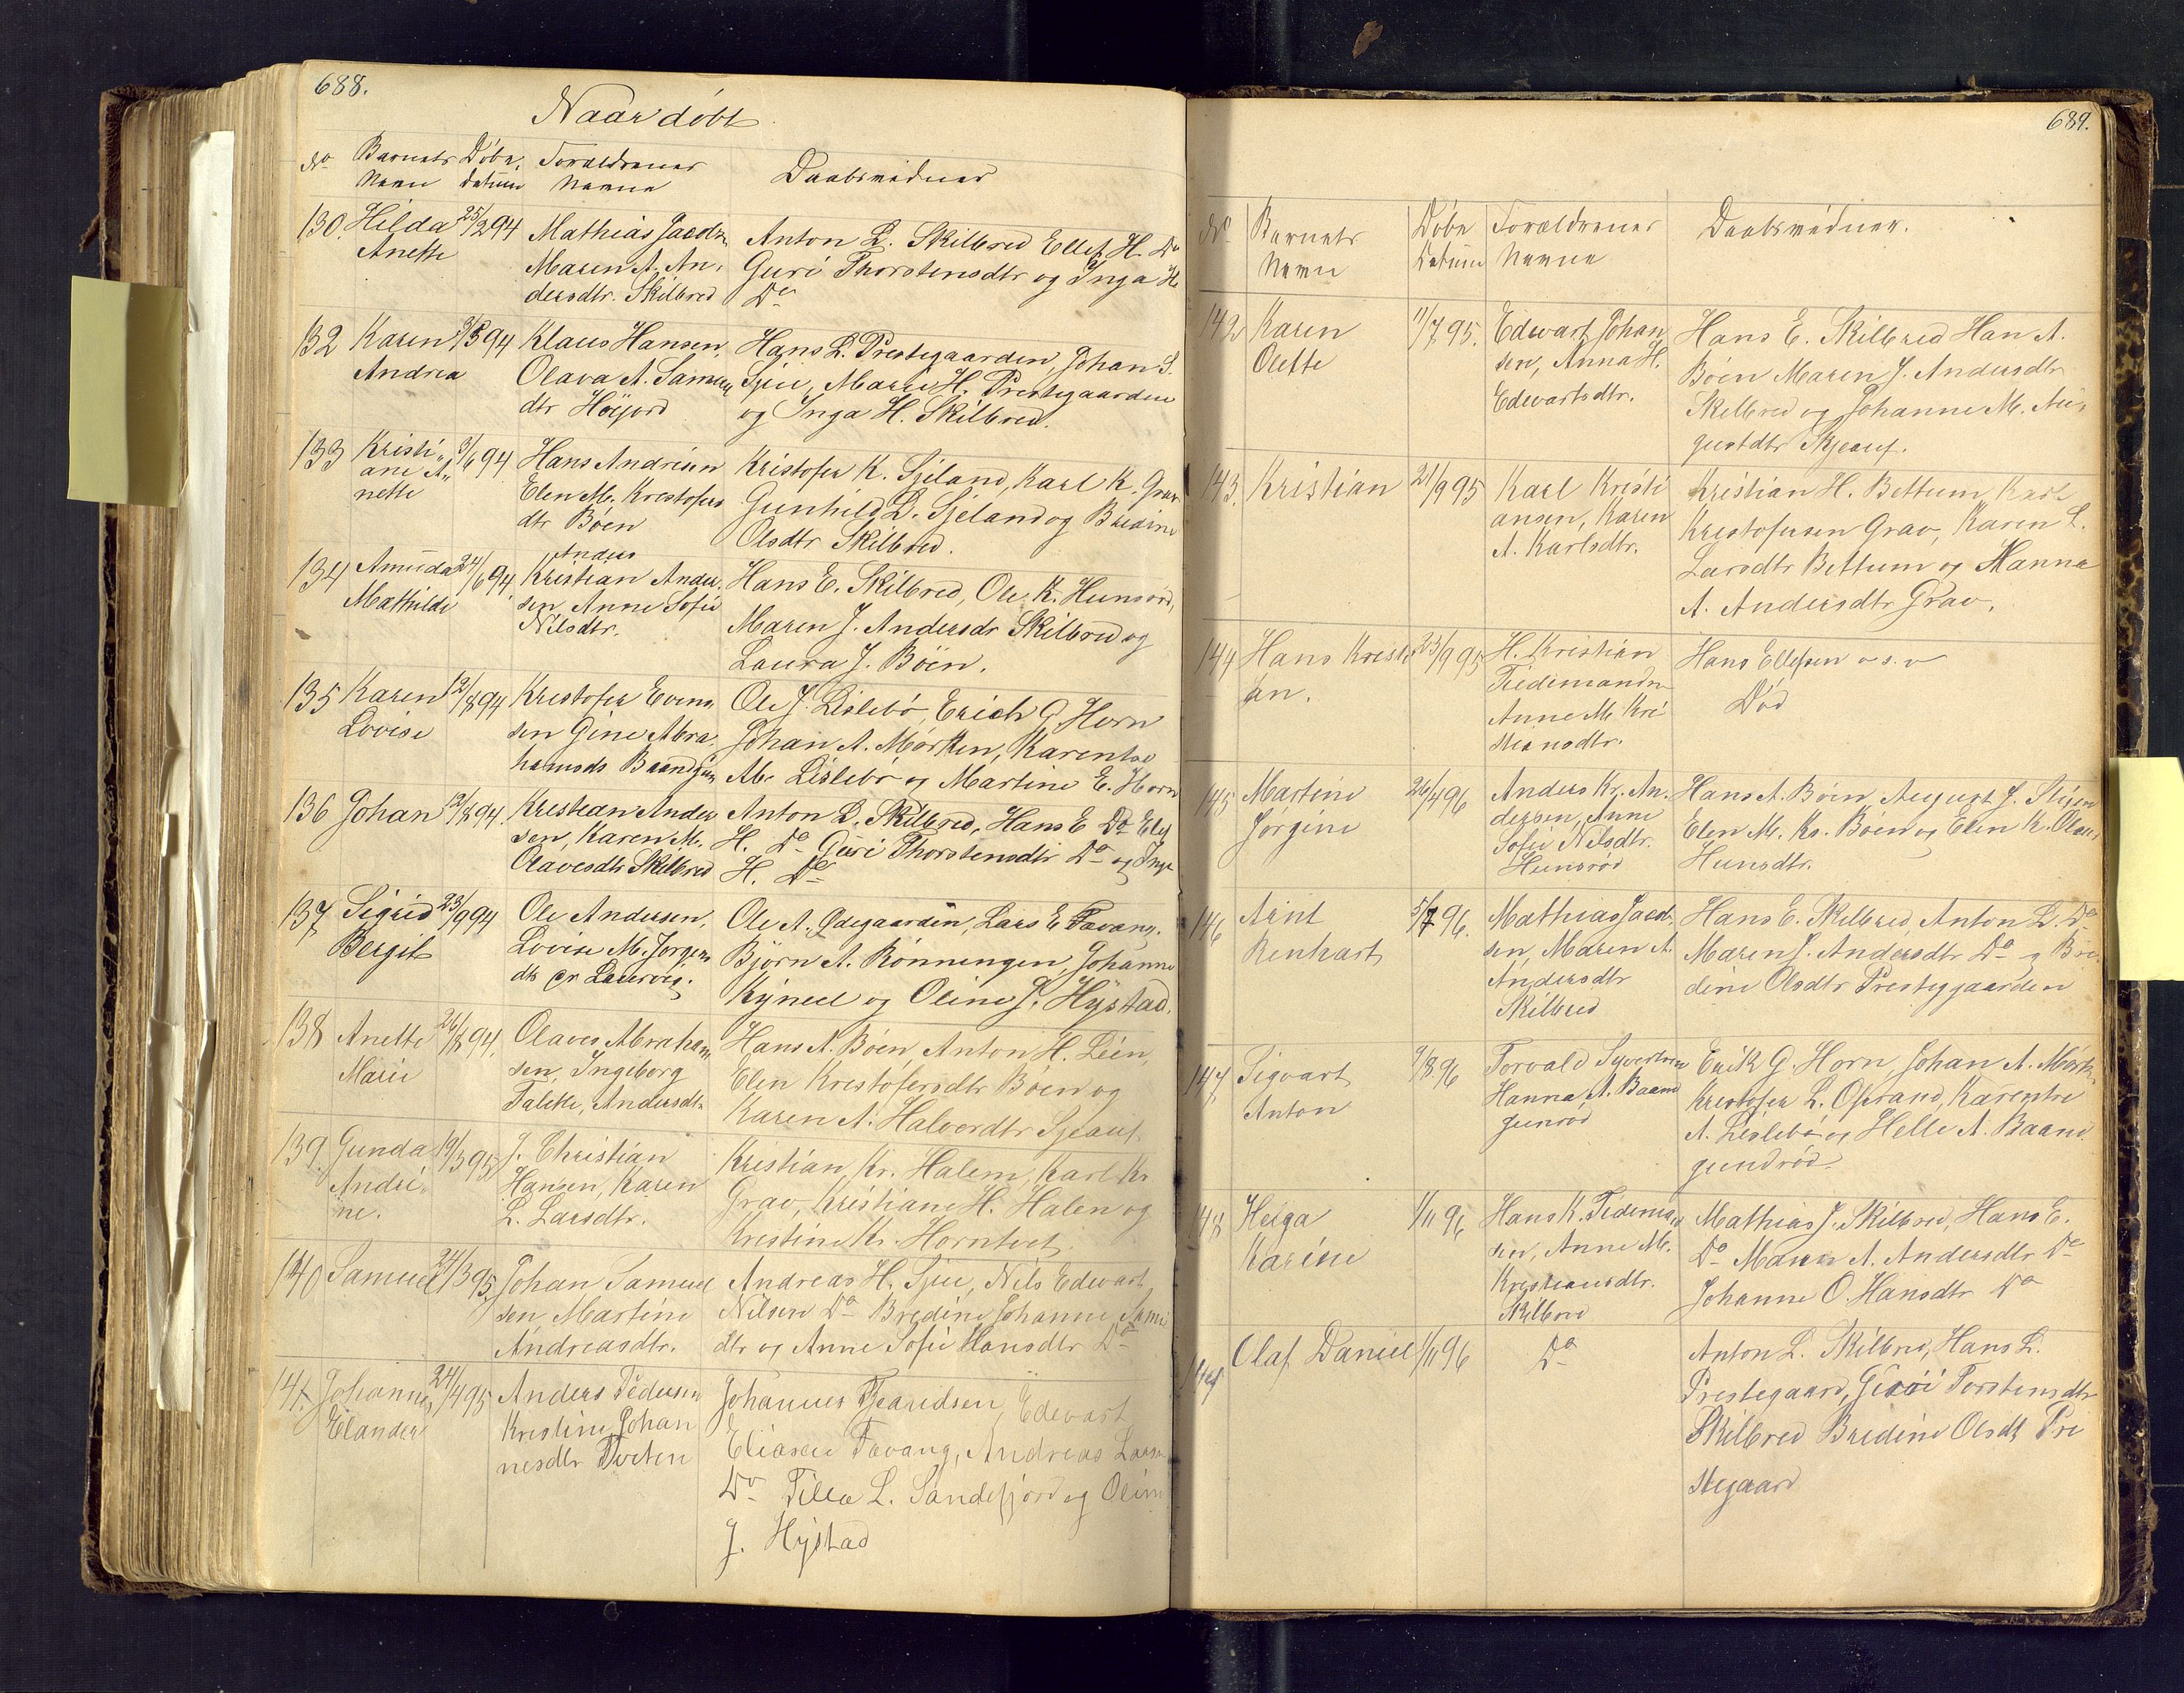 688.
Naar döbt
No Barnets Navn Döbe Datum Forældrenes Navne Daabsvidner
130. Hilda Anette 25/2 94 Mathias Jacobs. Maren A. An- dersdtr. Skilbred
Anton L. Skilbred Ellef H. Do
Guri Thorstensdtr og Inga H.
Do
132 Karen Andrea 94 Klaus Hansen, Olava A. Samuels dtr Höijord
Hans L. Prestegaarden, Johan S.
Sjue, Maren H. Prestegaarden
og Inga H. Skilbred.
133 Kristi- ane A- nette 3/6 94 Hans Andreasen Elen M. Krestofers dtr Böen
Kristofer K. Sjeland, Karl K. Grav
Gunhild L. Sjeland og Bredine
Olsdtr Skilbred.
134 Amuda Mathilde 24/6 94. Anders Kristian Ander- sen, Anne Sofie Nilsdtr.
Hans E. Skilbred, Ole K. Hunsröd,
Maren J. Andersdr Skilbred og
Laura J. Böen.
135 Karen Lovise 12/8 94 Krestofer Evens sen Gine Abra- hamsds
Ole J. Lislebö, Erich G. Horn
Johan A. Mörken, Karentse
M. Lislebö og Martine E. Horn
136 Johan 12/8 94. Krestean Ander sen, Karen M. Olavesdtr Skilbred
Anton L. Skilbred, Hans E Do Elef
H. Do Guri Thorstensdtr Do og Inga
H. Do
137 Sigrid Bergit 23/9 94 Ole Andersen, Lovise M. Jörgens dtr pr Laurvig.
Ole A. Ödegaarden, Lars E Favang.
Björn A. Rönningen, Johanne
Kyneel og Oline J. Hystad.
138 Anette Marie 26/8 94. Olaves Abraham sen, Ingeborg Talette, Andersdtr
Hans A. Böen, Anton H. Leen,
Elen Krestofersdtr Böen og
Karen A. Halverdtr Sjeauf.
139. Gunda Andri- ne. 19/3 95 J. Christian Hansen, Karen L. Larsdtr.
Kristian Kr. Halem, Karl Kr
Grav, Kristiane H. Halen og
Kristine Kr. Horntvet
140 Samuel 24/3 95. Johan Samuel sen, Martine Andreasdtr.
Andreas H. Sjue, Nils Edevart
Nilsen Do Bredine Johanne Sam
dtr og Anne Sofie Hansdtr Do
141. Johannes Elander 24/4 95 Anders Pedersen Krestine Johan nesdtr Tveten
Johannes Tjearidsen, Edevart
Eliasen Favang, Andreas Larsen
Do Tilla L. Sandefjord og Oline
J. Hystad
689.
No Barnets Navn Döbe Datum Forældrenes Navne Daabsvidner.
142 Karen Olette 11/7 95. Edevart Johan sen, Anna H. Edevartsdtr.
Hans E. Skilbred Han A.
Böen Maren J. Andersdtr
Skilbred og Johanne M. Au-
gustdtr Skjeauf.
143. Kristian 21/9 95 Karl Kristi ansen, Karen A. Karlsdtr.
Kristian H. Bettum, Karl
Krestofersen Grav, Karen L.
Larsdtr Bettum og Hanna
A. Andersdtr Grav.
144 Hans Kristi an. 23/9 95 H. Kristian Tiedemandn Anne M. Kri stiansdtr.
Hans Ellefsen o s. v
Död
145 Martine Jörgine 26/4 96 Anders Kr. An- dersen, Anne Sofie Nilsdtr. Hunsröd
Hans A. Böen, August J. Stigen
Elen M. Kr. Böen og Elen K. Olaves
Hunsdtr.
146 Arint Renhart 5/7 96. Mathias Jacob- sen, Maren A. Andersdtr Skilbred
Hans E. Skilbred, Anton L. Do
Maren J. Andersdtr Do og Bre-
dine Olsdtr Prestegaarden
147 Sigvart Anton 9/8 96 Torvald Syvertsen Hanna A. Baand gunröd
Erik G. Horn, Johan A. Mörk.
Krestofer L. Öfsrand, Karentse
A. Leslebö og Helle A. Baand
gundröd
148 Helga Karine 1/11 96 Hans K. Tidemand sen, Anne M. Kristiansdtr. Skilbred
Mathias J. Skilbred, Hans E.
Do Maren A. Andersdtr Do
Johanne O. Hansdtr Do
149 Olaf Daniel 1/11 96 Do
Anton L. Skilbred, Hans L.
Prestegaard, Guri Torstensdtr
Skilbred Bredine Olsdt Pre
stegaard